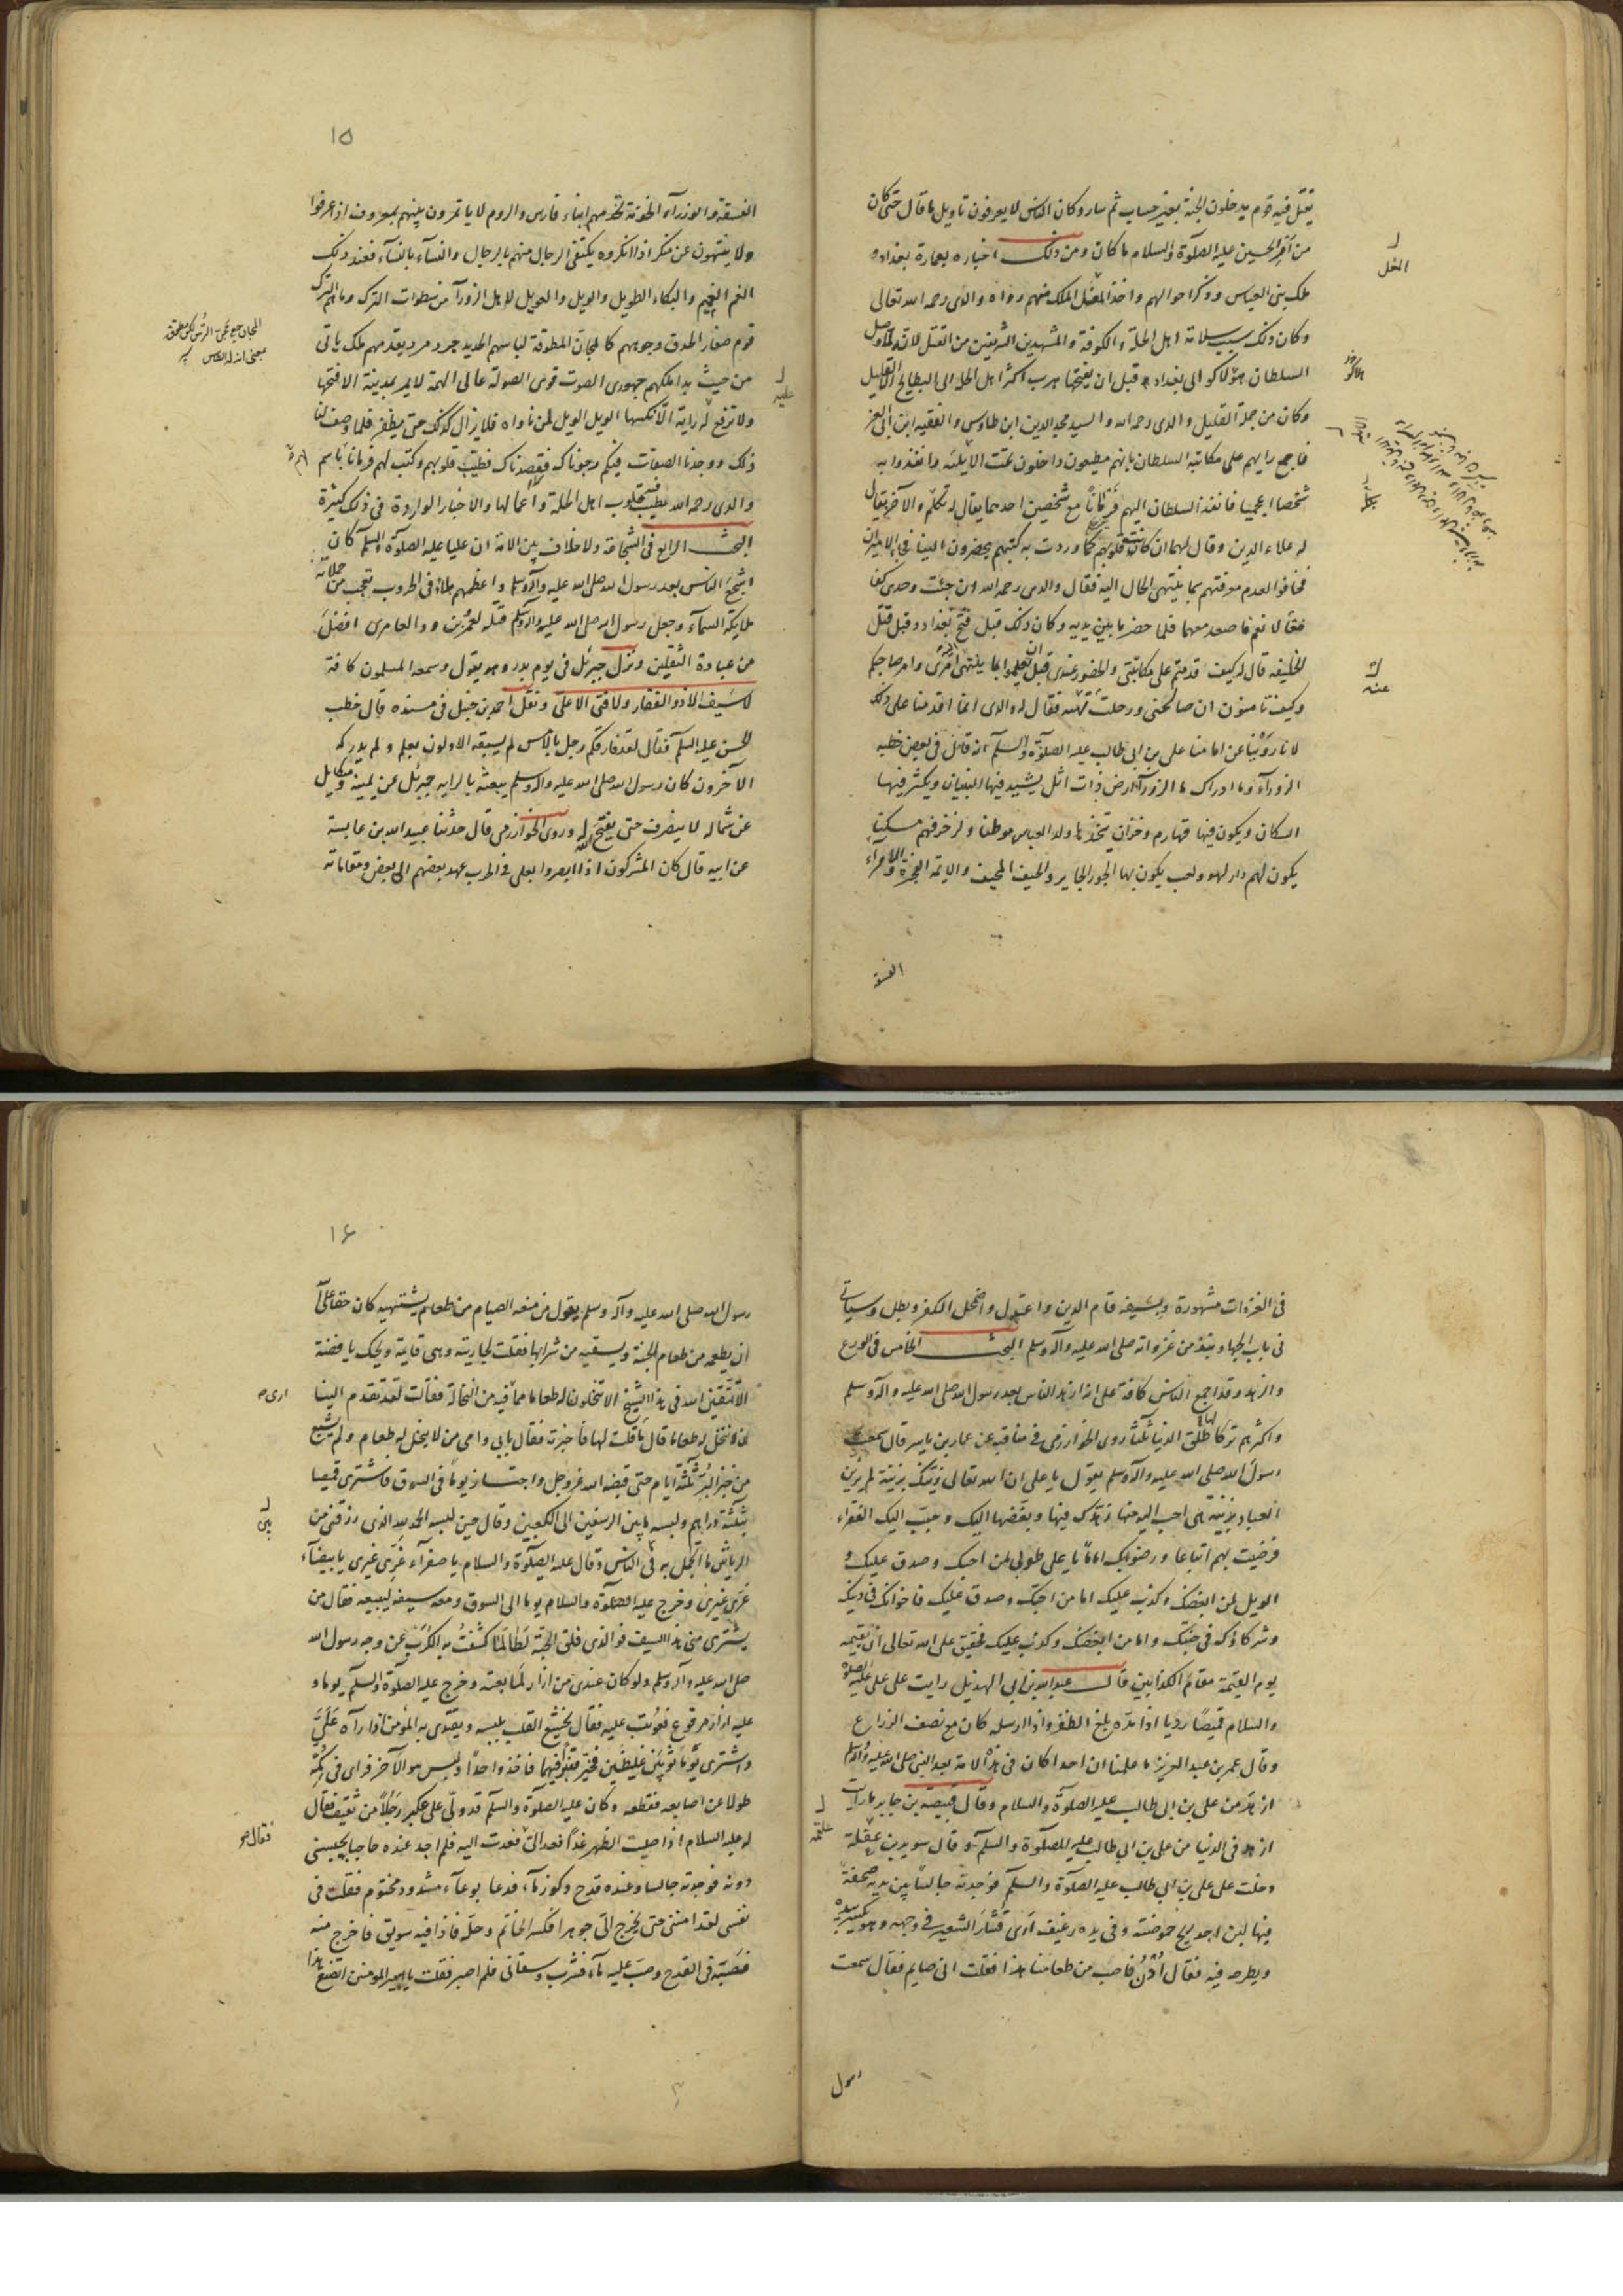 يقتل فيه قوم يدخلون الجنة بغير حساب ثم سار وكان الناس لا يعرفون تأويل ما قال حتى كان
من أمر الحسين عليه الصلوة والسلام ما كان ومن ذلك اخباره بعمارة بغداد و
ملك بنى العباس وذكر احوالهم واخذ المغل الملك منهم رواه والدى رحمه الله تعالى
وكان ذلك سبب سلامة اهل الحلة والكوفة والمشهدين الشريفين من القتل لانه لما وصل
السلطان هولاكو الى بغداد قبل ان يفتحها هرب اكثر اهل الحلة الى البطايح الا القليل
وكان من جملة القليل والدى رحمه الله والسيد مجد الدين ابن طاوس والفقيه ابن ابى العز
فاجمع رايهم على مكاتبة السلطان بانهم مطيعون داخلون تحت الايلية وانفذوا به
شخصا اعجميا فانفذ السلطان اليهم فرمانا مع شخصين احدهما يقال له تكلم والآخر يقال
له علاء الدين وقال لهما ان كانت قلوبهم كما وردت به كتبهم يحضرون الينا فجاء الاميران
فخافوا لعدم معرفتهم بما ينتهى الحال اليه فقال والدى رحمه الله ان جئت وحدى كفا
فقالا نعم فاصعد معهما فلما حضر ما بين يديه وكان ذلك قبل فتح بغداد وقبل قتل
الخليفه قال له كيف قدمتم على مكاتبتى والحضور عندى قبل ان تعلموا بما ينتهى امرى وامر صاحبكم
وكيف تامنون ان صالحنى ورحلت عنه فقال له والدى انما اقدمنا على ذلك
لانا روينا عن امامنا على بن ابى طالب عليه الصلوة والسلام انه قال فى بعض خطبه
الزورآء وما ادراك ما الزورآء ارض ذات اثل يشيد فيها البنيان ويكثر فيها
السكان ويكون فيها قهارم وخزان يتخذها ولد العباس موطنا ولزخرفهم مسكنا
يكون لهم دار لهو ولعب يكون بها الجور الجاير والحيف المحيف والايمة الفجرة والامرآء
الفسقة
المغل
عنه
الفسقة والوزرآء الخونة تخدمهم ابناء فارس والروم لا يأتمرون بينهم بمعروف اذا عرفوا
ولا ينتهون عن منكر اذا انكروه يكتفى الرجال منهم بالرجال والنسآء بالنسآء فعند ذلك
الغم الغميم والبكاء الطويل والويل والعويل لاهل الزورآء من سطوات الترك وما هم الترك
قوم صغار الحدق وجوههم كالمجان المطرقة لباسهم الحديد جرد مرد يقدمهم ملك ياتى
من حيث بدا ملكهم جهورى الصوت قوى الصولة عالى الهمة لا يمر بمدينة الا فتحها
ولا ترفع له راية الا نكسها الويل الويل لمن ناواه فلا يزال كذلك حتى يظفر فلما وصف لنا
ذلك ووجدنا الصفات فيكم رجوناك فقصدناك فطيب قلوبهم وكتب لهم فرمانا باسم
والدى رحمه الله يطيب فيه قلوب اهل الحلة واعمالها والاخبار الواردة فى ذلك كثيرة
البحث الرابع فى الشجاعة ولا خلاف بين الامة ان عليا عليه الصلوة والسلم كان
اشجع الناس بعد رسول الله صلى الله عليه وآله وسلم واعظمهم بلاء فى الحروب تعجب من حملاته
ملايكة السمآء وجعل رسول الله صلى الله عليه وآله وسلم قتله لعمرو بن ود العامرى افضل
من عبادة الثقلين ونزل جبرئل فى يوم بدر وهو يقول وسمعه المسلمون كافة
لا سيف الا ذو الفقار ولا فتى الا على ونقل احمد بن حنبل فى مسنده قال خطب
الحسن عليه السلم فقال لقد فارقكم رجل بالامس لم يسبقه الاولون بعلم ولم يدركه
الآخرون كان رسول الله صلى الله عليه وآله وسلم يبعثه بالراية جبرئل عن يمينه وميكايل
عن شماله لا ينصرف حتى يفتح الله له وروى الخوارزمى قال حدثنا عبيد الله بن عايشة
عن ابيه قال كان المشركون اذا ابصروا بعلى فى الحرب عهد بعضهم الى بعض ومقاماته
١٥
عليه
فى الغزوات مشهورة وبسيفه قام الدين واعتدل واضمحل الكفر وبطل وسياتى
فى باب الجهاد نبذ من غزواته صلى الله عليه وآله وسلم البحث الخامس فى الورع
والزهد وقد اجمع الناس كافة على انه ازهد الناس بعد رسول الله صلى الله عليه وآله وسلم
واكثرهم تركا لها طلق الدنيا ثلثا روى الخوارزمى فى مناقبه عن عمار بن ياسر قال سمعت
رسول الله صلى الله عليه وآله وسلم يقول يا على ان الله تعالى زينك بزينة لم يزين
العباد بزينة هى احب اليه منها زهدك فيها وبغضها اليك وحبب اليك الفقراء
فرضيت بهم اتباعا ورضوا بك اماما يا على طوبى لمن احبك وصدق عليك و
الويل لمن ابغضك وكذب عليك اما من احبك وصدق عليك فاخوانك فى دينك
وشركاؤك فى جنتك واما من ابغضك وكذب عليك فحقيق على الله تعالى ان يقيمه
يوم القيمة مقام الكذابين قال عبد الله بن ابى الهذيل رايت على على عليه الصلوة
والسلام قميصا رديا اذا مده بلغ الظفر واذا ارسله كان مع نصف الذراع
وقال عمر بن عبد العزيز ما علمنا ان احدا كان فى هذه الامة بعد النبى صلى الله عليه وآله وسلم
ازهد من على بن ابى طالب عليه الصلوة والسلام وقال قبيصة بن جابر ما رايت
ازهد فى الدنيا من على بن ابى طالب عليه الصلوة والسلم وقال سويد بن غفلة
دخلت على على بن ابى طالب عليه الصلوة والسلم فوجدته جالسا بين يديه صحفة
فيها لبن اجد ريح حموضته وفى يده رغيف ارى قشار الشعير فى وجهه وهو يكسر بيده
ويطرحه فيه فقال ادن فاصب من طعامنا هذا فقلت انى صايم فقال سمعت
رسول
رسول الله صلى الله عليه وآله وسلم يقول من منعه الصيام من طعام يشتهيه كان حقا على الله
ان يطعمه من طعام الجنة ويسقيه من شرابها فقلت لجاريته وهى قايمة ويحك يا فضة
الا تتقين الله فى هذا الشيخ الا تنخلون له طعاما مما فيه من النخالة فقالت لقد تقدم الينا
ان لا ننخل له طعاما قال ما قلت لها فاخبرته فقال بابى وامى من لا ينخل له طعام ولم يشبع
من خبز البر ثلثة ايام حتى قبضه الله عز وجل واجتاز يوما فى السوق فاشترى قميصا
بثلثة دراهم ولبسه ما بين الرسغين الى الكعبين وقال حين لبسه الحمد لله الذى رزقنى من
الرياش ما اتجمل به فى الناس وقال عليه الصلوة والسلام يا صفرآء غرى غيرى يا بيضآء
غرى غيرى وخرج عليه الصلوة والسلام يوما الى السوق ومعه سيفه ليبيعه فقال من
يشترى منى هذا السيف فوالذى فلق الحبة لطالما كشفت به الكرب عن وجه رسول الله
صلى الله عليه وآله وسلم ولو كان عندى من ازار لما بعته وخرج عليه الصلوة والسلم يوما و
عليه ازار مرقوع فعوتب عليه فقال يخشع القلب بلبسه ويقتدى به المؤمن اذا رآه على
واشترى يوما ثوبين غليظين فخير قنبر فيهما فاخذ واحدا ولبس هو الآخر فراى فى كمه
طولا عن اصابعه فقطعه وكان عليه الصلوة والسلم قد ولى على عكبر رجلا من ثقيف فقال
له عليه السلام اذا صليت الظهر غدا فعد الى فعدت اليه فلم اجد عنده حاجبا يحبسنى
دونه فوجدته جالسا وعنده قدح وكوز مآء فدعا بوعآء مشدود مختوم فقلت فى
نفسى لقد امننى حتى يخرج الى جوهرا فكسر الخاتم وحله فاذا فيه سويق فاخرج منه
فصبه فى القدح وصب عليه مآء فشرب وسقانى فلم اصبر فقلت يا امير المومنين اتصنع هذا
١٦